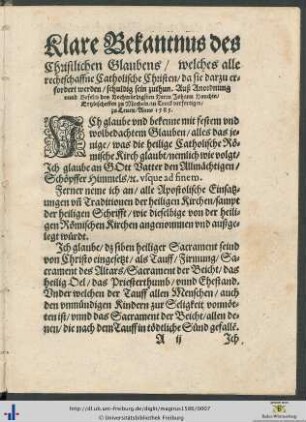 Klare Bekantnus des
Christlichen Glaubens / welches alle
rechtschaffne Catholische Christen / da sie darzu er-
fordert werden / schuldig sein zuthun. Auß Anordnung
vnnd Befelch des Hochwürdigsten Herrn Johann
Ertzbischoffen zu
zu 
ICh glaube vnd bekenne mit festem vnd
wolbedachtem Glauben / alles das je-
nige / was die heilige Catholische Rö-
mische Kirch glaubt / nemlich wie volgt /
Ich glaube an GOtt Vatter den Allmächtigen /
Schöpffer Himmels / ꝛc. vsque ad finem.
Ferner neme ich an / alle Apostolische Einsatz-
ungen vñ Traditionen der heiligen Kirchen / sampt
der heiligen Schrifft / wie dieselbige von der heili-
gen Römischen Kirchen angenommen vnd außge-
legt würdt.
Ich glaube / dz siben heiliger Sacrament seind
von Christo eingesetzt / als Tauff / Firmung / Sa-
crament des Altars / Sacrament der Beicht / das
heilig Oel / das Priesterthumb / vnnd Ehestand.
Vnder welchen der Tauff allen Menschen / auch
den vnmündigen Kindern zur Seligkeit vonnö-
ten ist / vnnd das Sacrament der Beicht / allen de-
nen / die nach dem Tauff in tödtliche Sünd gefallē.
A ij Ich
http://dl.ub.uni-freiburg.de/diglit/magnus1586/0007
© Universitätsbibliothek Freiburg